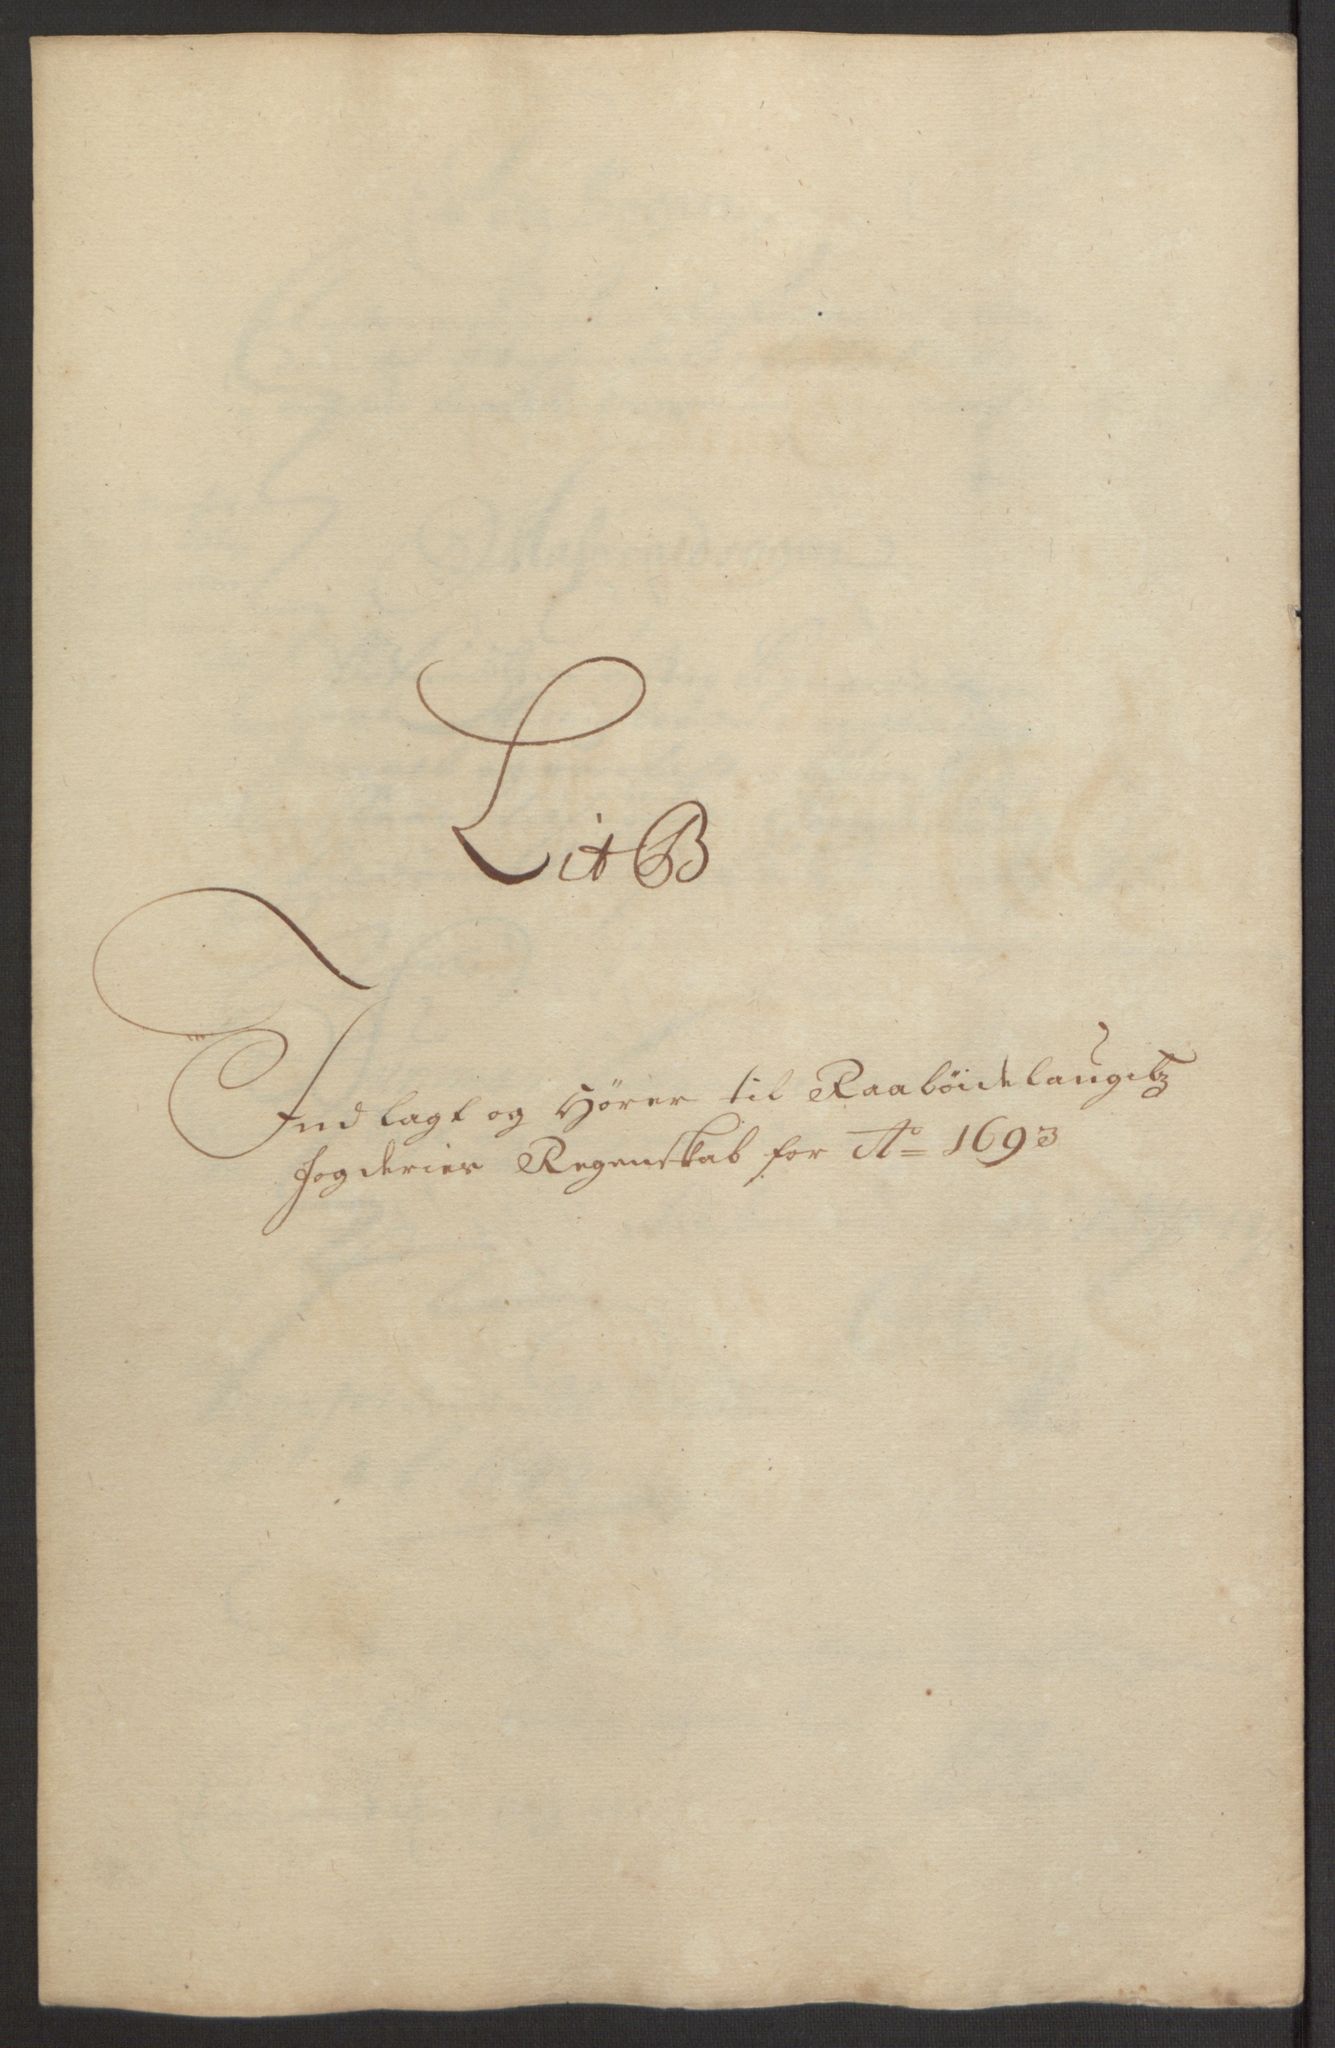 Lit B
Indlagt og Hörer til Raaböidelaugetz
fogderies Regenskab for Ao 1693